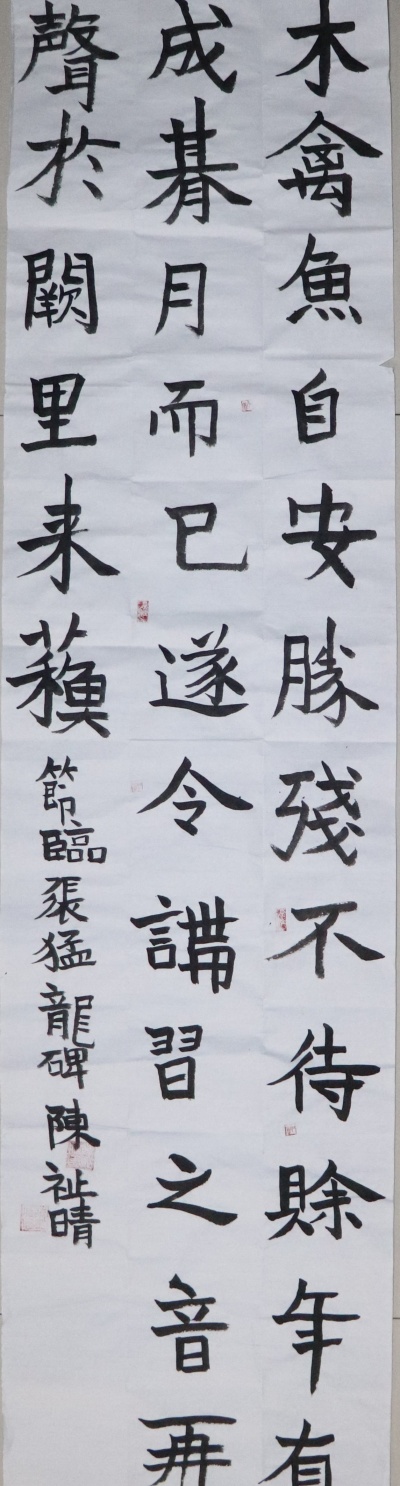 木禽魚自安勝殘不待賒年有
成朞月而已遂令講習之音再
聲於闕里来蘓
節臨張猛龍碑陳祉晴